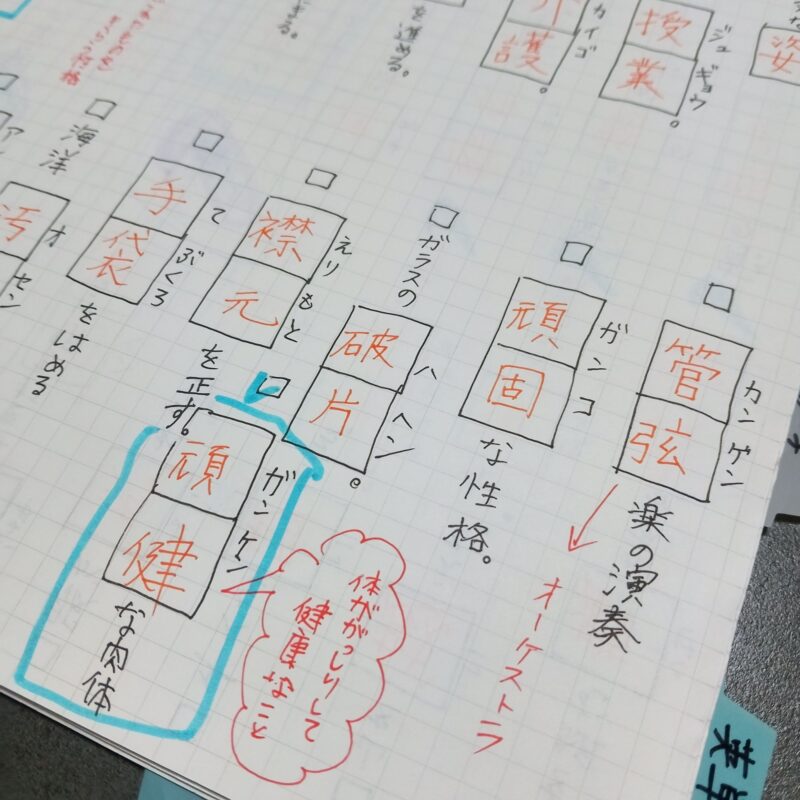 姿
授業
ジュギョウ
。
護
カイゴ
。
を進める。
きる。
管弦
カンゲン
楽の演奏
オーケストラ
頑固
ガンコ
な性格。
ガラスの
破片
ハヘン
。
頑健
ガンケン
な肉体
体ががっしりして
健康なこと
襟元
えりもと
を正す。
手袋
てぶくろ
をはめる
海洋
汚
オセン